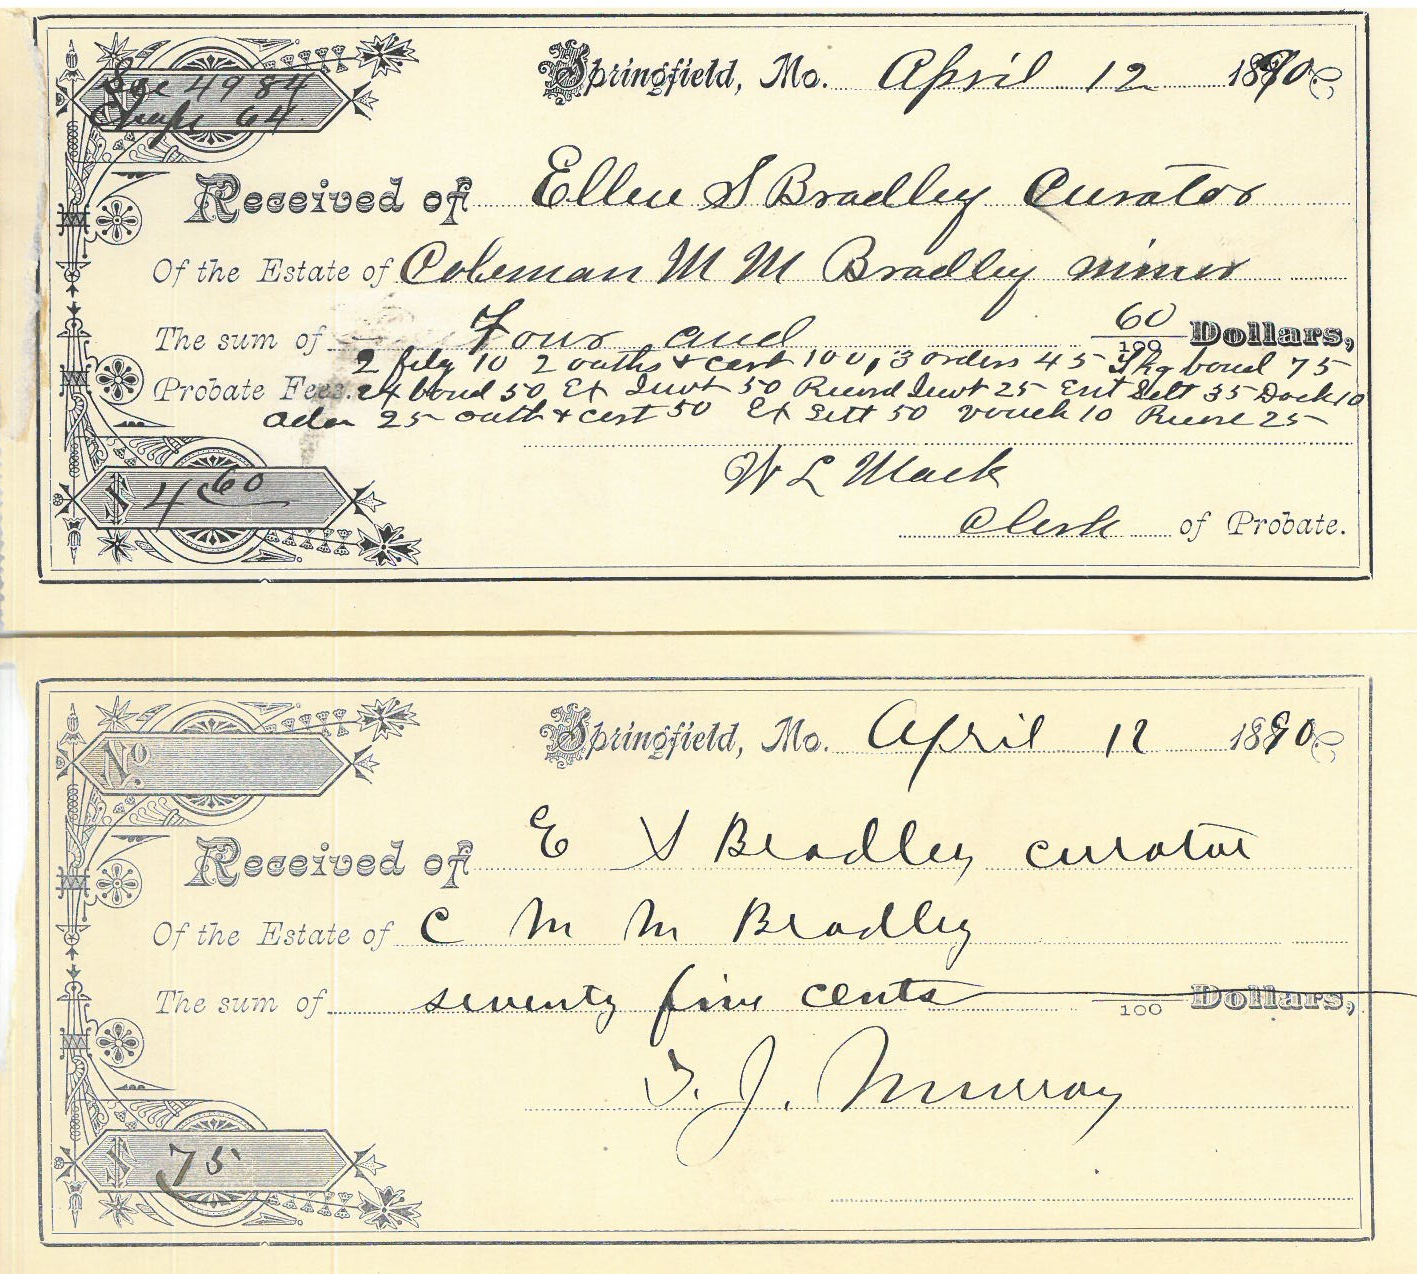 4984
64
Springfield, Mo. April 12 1890
Received of Ellen S Bradley Curator
Of the Estate of Coleman M M Bradley minor
The sum of Four and 60/100 Dollars,
2 filg 10 2 oaths & cert 100, 3 orders 45 bond 75
Probate Fees. bond 50 Ex Invt 50 Record Invt 25 Ent Sett 35 Dock 10
25 oath & cert 50 Ex Sett 50 vouch 10 25
W L Mack
Clerk of Probate.
$ 4 60
Springfield, Mo. April 12 1890
No
Received of E S Bradley curator
Of the Estate of C M M Bradley
The sum of seventy five cents /100 Dollars,
T. J. Murray
$ 75